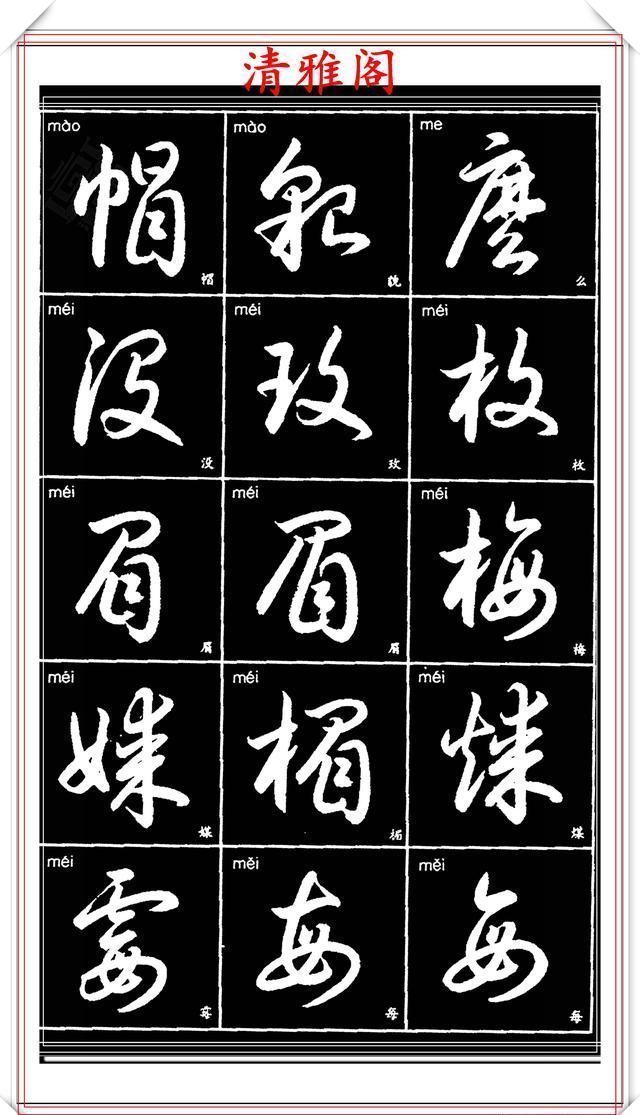 清雅阁
mào mào me
帽 貌 麼
帽 貌 么
méi méi méi
没 玫 枚
没 玫 枚
méi méi méi
眉 眉 梅
眉 眉 梅
méi méi méi
媒 楣 煤
媒 楣 煤
méi měi měi
霉 每 每
霉 每 每